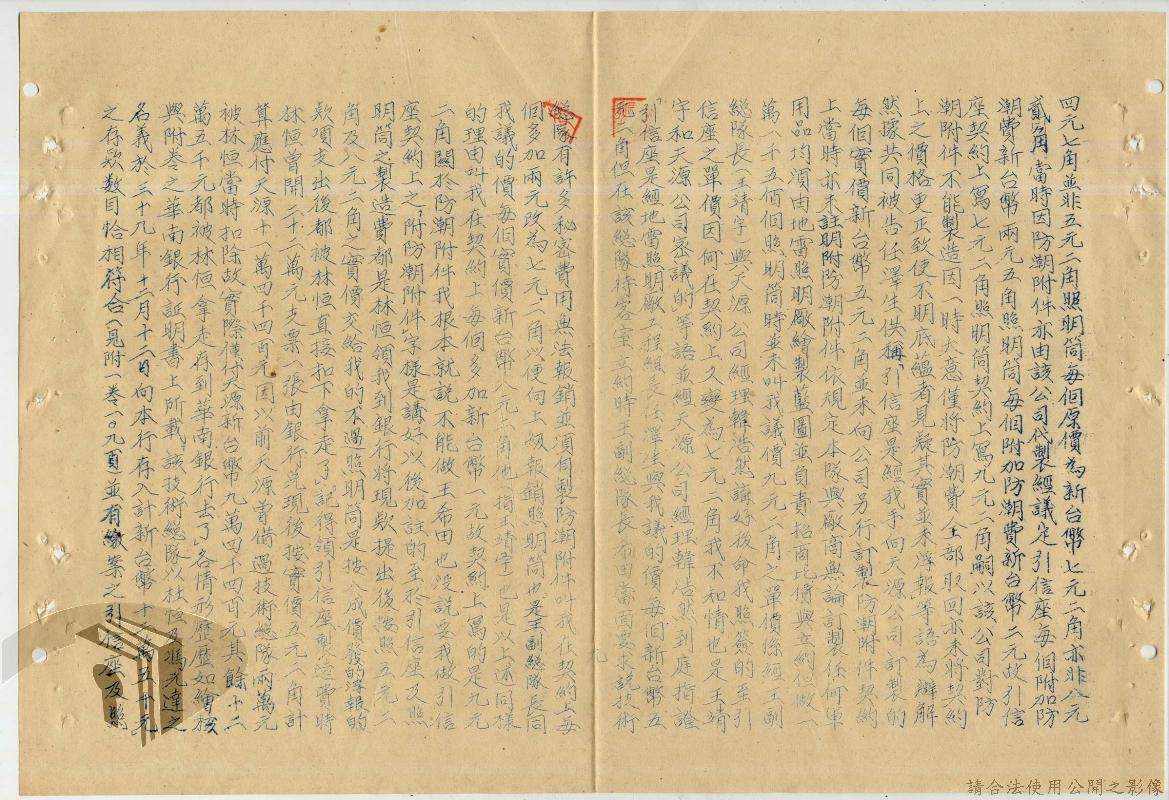 四元七角並非五元二角照明筒每個原價為新台幣七元二角亦非八元
貳角當時因防潮附件亦由該公司代製經議定引信座每個附加防
潮費新台幣兩元五角照明筒每個附加防潮費新台幣二元故引信
座契約上寫七元二角照明筒契約上寫九元二角嗣以該公司對防
潮附件不能製造因一時大意僅將防潮費全部取回亦未將契約
上之價格更正致使不明底蘊者見疑其實並未浮報等語為辯解
然據共同被告任澤生供稱「引信座是經我手向天源公司訂製的
每個實價新台幣五元二角並未向公司另行訂製防潮附件契約
上當時亦未註明附防潮附件依規定本隊與廠商無論訂製任何軍
用品均須由地雷照明廠繪製藍圖並負責招商比價與立約但做一
萬一千五佰個照明筒時並未叫我議價九元二角之單價係經王副
總隊長(王靖宇)與天源公司經理韓浩然議好後命我照簽的至引
信座之單價因何在契約上又變為七元二角我不知情也是王靖
宇和天源公司密議的」等語並經天源公司經理韓浩然到庭指證
「引信座是經地雷照明廠工程組長任澤生與我議的價每個新台幣五
元二角但在該總隊待客室立約時王副總隊長希田當面要求說技術
總隊有許多秘密費用無法報銷並須自製防潮附件叫我在契約上每
個多加兩元改為七元二角以便向上級報銷照明筒也是王副總隊長同
我議的價每個實價新台幣八元二角他(指王靖宇)也是以上述同樣
的理由叫我在契約上每個多加新台幣一元故契約上寫的是九元
二角關於防潮附件我根本就說不能做王希田也沒說要我做引信
座契約上之「附防潮附件」字樣是講好以後加註的至於引信座及照
明筒之製造費都是林恒領我到銀行將現欵提出後按照五元二
角及八元二角之實價交給我的不過照明筒是按八成價發的浮報的
欵項支出後都被林恒直接扣下拿走了」記得領引信座製造費時
林恒曾開二十二萬元支票一張由銀行兌現後按實價五元二角計
算應付天源十一萬四千四百元因以前天源曾借過技術總隊兩萬元
被林恒當時扣除故實際僅付天源新台幣九萬四千四百元其餘十二
萬五千元都被林恒拿走存到華南銀行去了」各情形歷歷如繪核
與附卷之華南銀行証明書上所載「該技術總隊以杜恒及馮元達之
名義於三十九年十二月十二日向本行存入計新台幣十二萬五千元
之存欵數目恰相符合(見附一卷一〇九頁)並有繳案之引信座及照
請合法使用公開之影像